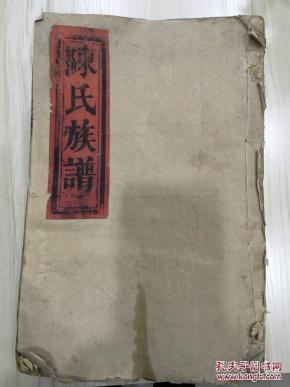 陳氏族譜
孔夫子旧书网